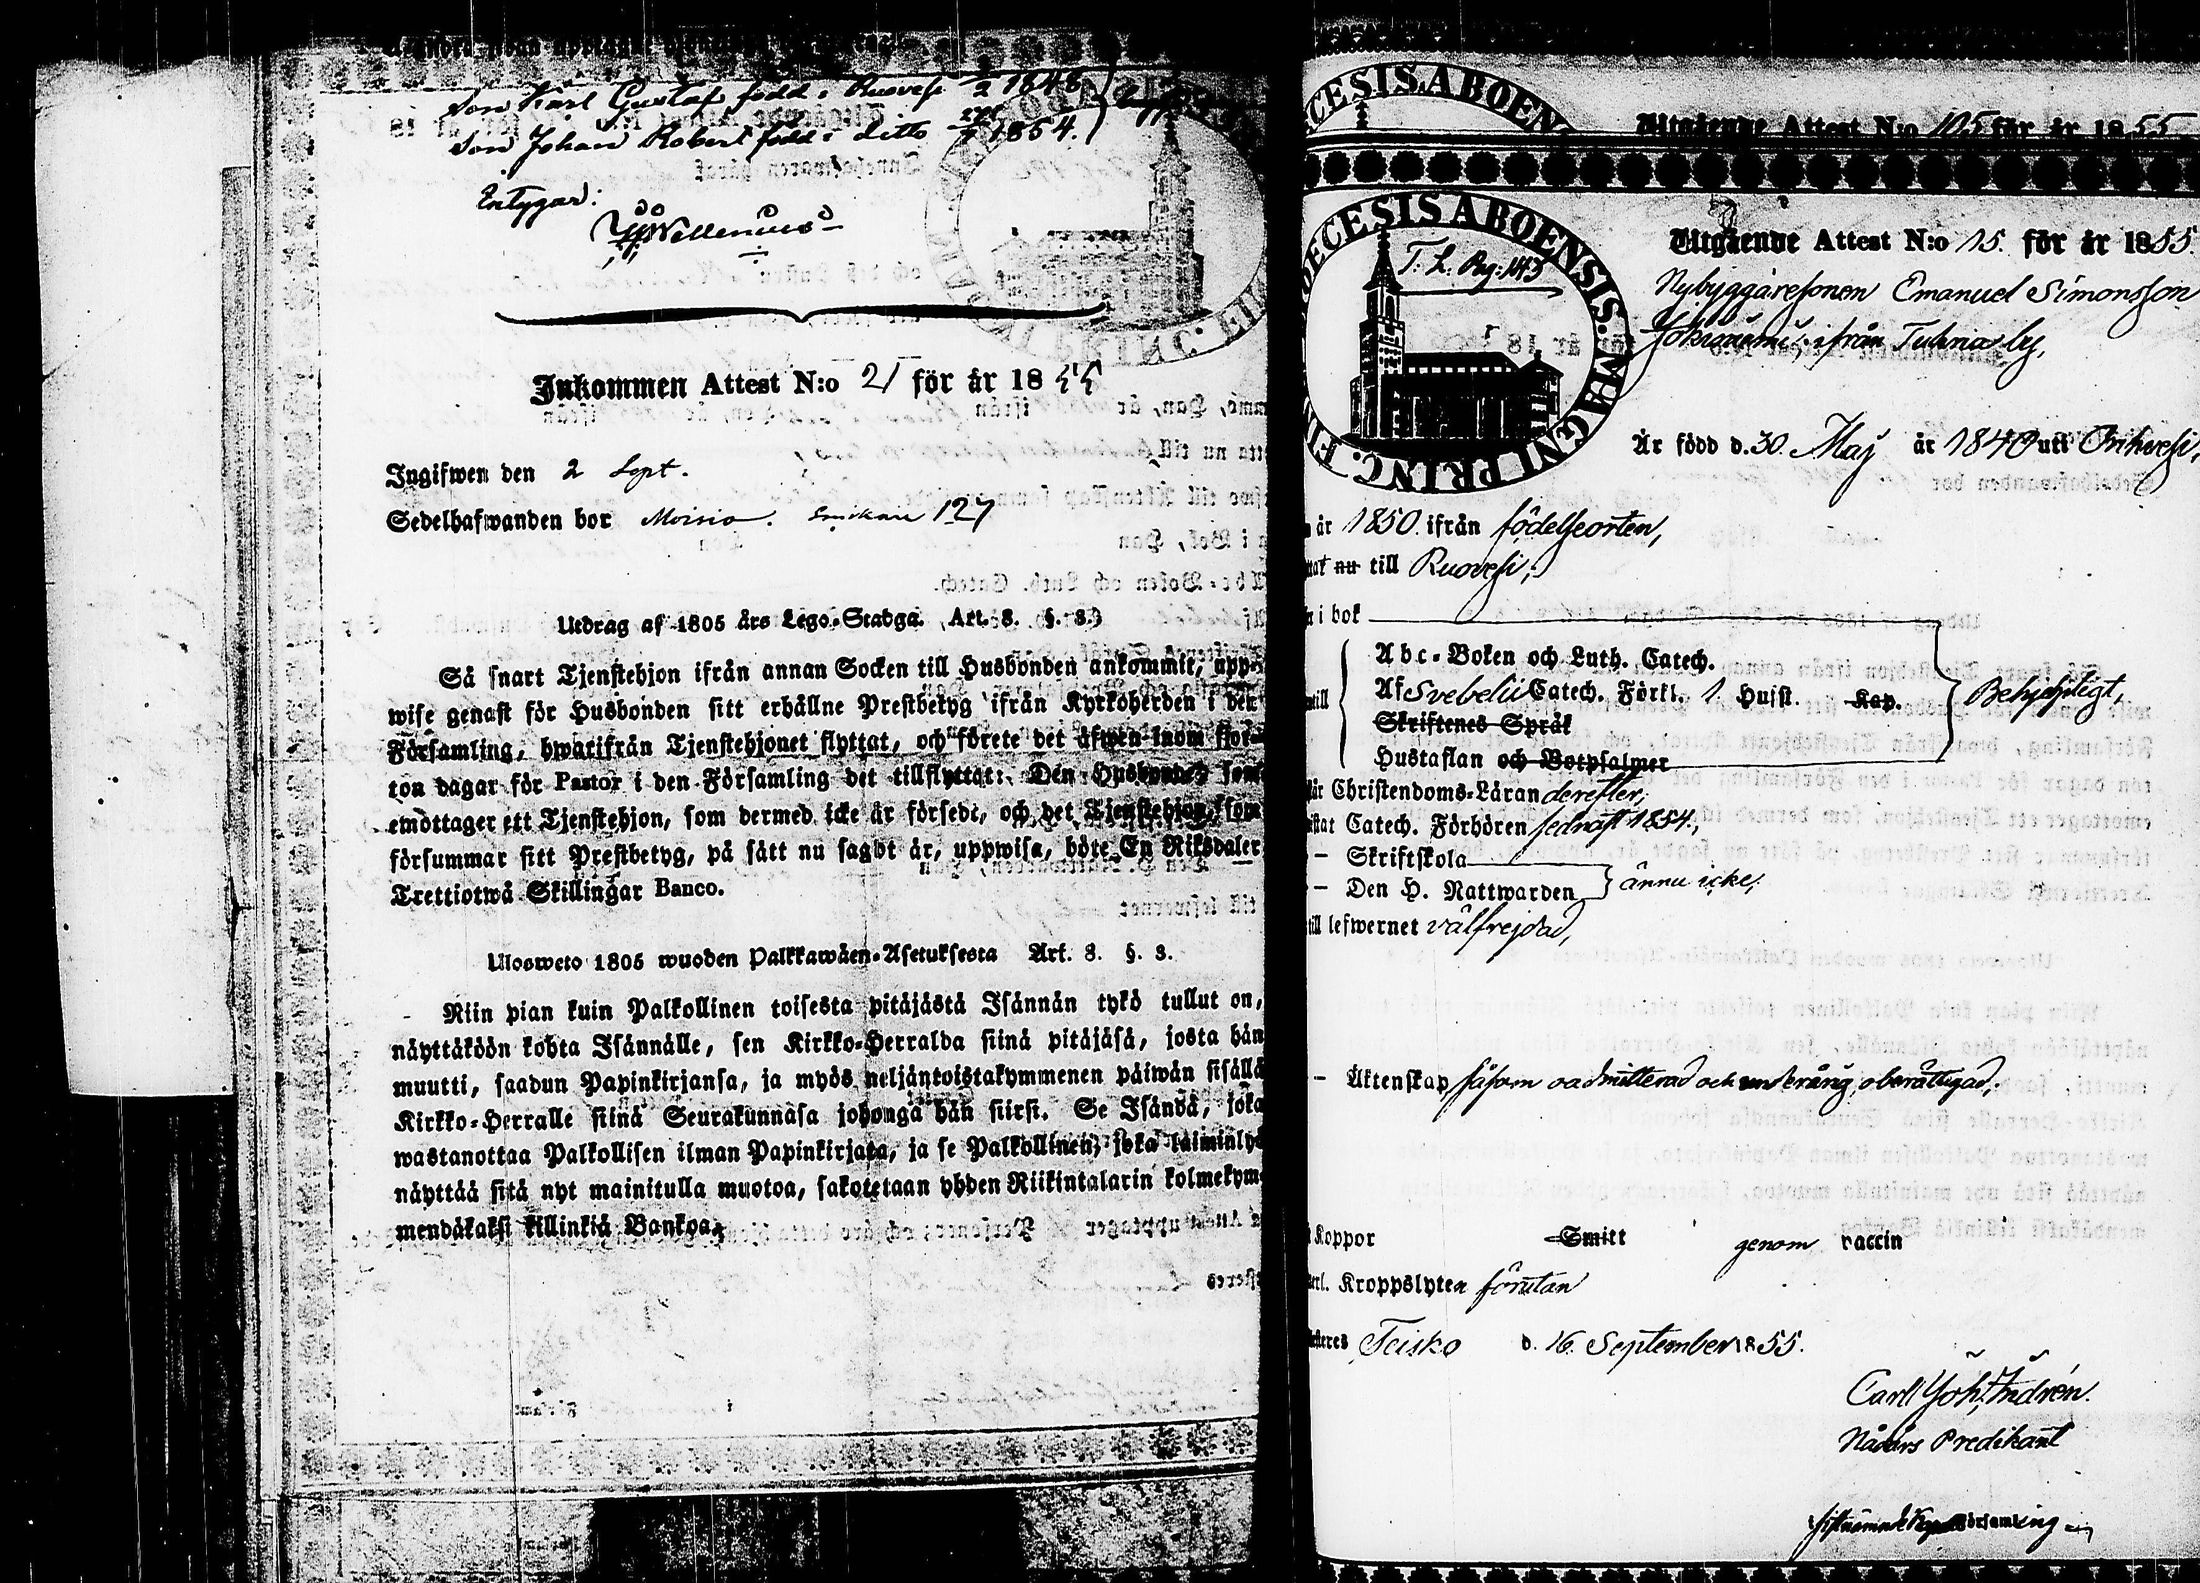 Son Karl Gustaf född i Ruovesi 1848
Son Johan Robert född i ditto 1854.
Entygar:
Wellenius
Inkommen Attest N:o 21 för år 1855
Ingifwen den 2 Sept.
Sedelhafwanden bor Moisio. 127
Utdrag af 1805 års Lego-Stadga. Art. 8. §. 3.
Så snart Tjenstehjon ifrån annan Socken till Husbonden ankommit, upp-
wise genast för Husbonden sitt erhållne Prestbetyg ifrån Kyrkoherden i den
Församling, hwarifrån Tjenstehjonet flyttat, och förete det äfwen inom fjor-
ton dagar för Pastor i den Församling det tillflyttat: Den Husbonde som
emottager ett Tjenstehjon, som dermed icke är försedt, och det Tjenstehjon, som
försummar sitt Prestbetyg, på sätt nu sagdt är, uppwisa, böte En Riksdaler
Trettiotwå Skillingar Banco.
Ulosweto 1805 wuoden Palkkawäen-Asetuksesta Art. 8. §. 3.
Niin pian kuin Palkollinen toisesta pitäjästä Isännän tykö tullut on,
näyttäköön kohta Isännälle, sen Kirkko-Herralda siinä pitäjäsä, josta hän
muutti, saadun Papinkirjansa, ja myös neljäntoistakymmenen päiwän sisällä
Kirkko-Herralle siinä Seurakunnasa johonga hän siirsi. Se Isändä, joka
wastanottaa Palkollisen ilman Papinkirjata, ja se Palkollinen, joka laiminlyö
näyttää sitä nyt mainitulla muotoa, sakotetaan yhden Riikintalarin kolmekym-
mendäkaksi killinkiä Bankoa.
CESIS.ABOEN
Utgående Attest N:o 105 för år 1855
DECESIS ABOENSIS. MAGNI PRINC. FIN
T. L. Pag: 143
Utgående Attest N:o 15. för år 1855.
Nybyggaresonen Emanuel Simonsson
ifrån Tuhria by,
Är född d. 30. Maj år 1840 uti Orihvesi,
år 1850. ifrån födelseorten,
nu till Ruovesi;
i bok
Abc-Boken och Luth. Catech.
Af Svebelii Catech. Förkl. 1. Husst. Kap.
Skriftenes Språk
Hustaflan och Botpsalmer
Behjelpligt,
Christendoms-Läran derefter;
Catech. Förhören sednast 1854.,
- Skriftskola
- Den H. Nattwarden
ännu icke;
till lefwernet välfrejdad,
- Äktenskap såsom oadmitterad och underårig, oberättigad;
Koppor Smitt genom vaccin
Kroppslyten förutan
Teisko d. 16. September 1855.
Carl Joh. Andrén.
Nådårs Predikant